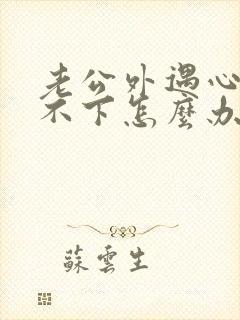 老公外遇心
不下怎麼办
蘇雲生